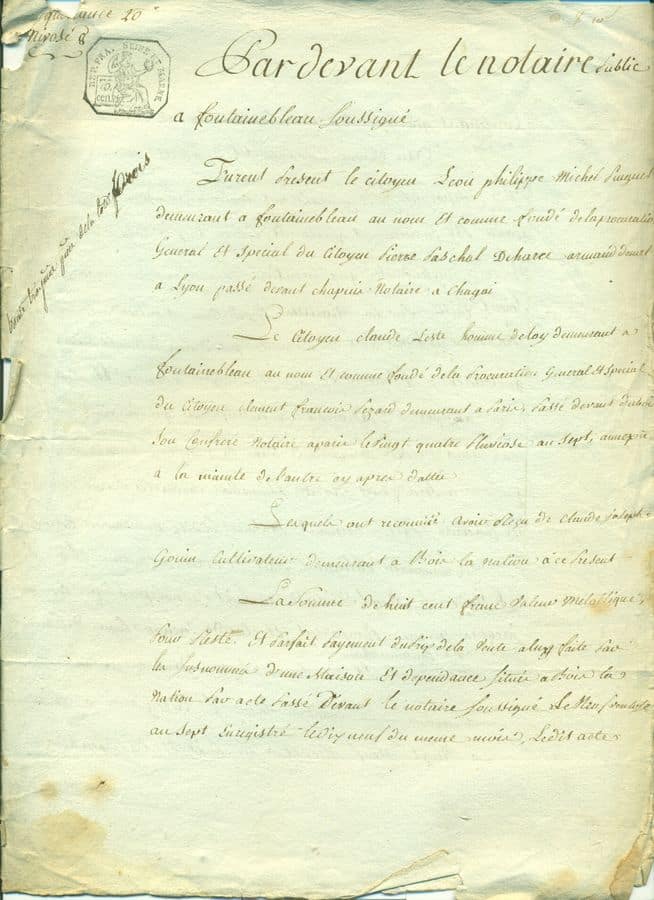 quittance 20
Nivose 8
REP. FRA. SEINE ET MARNE
Pardevant le notaire Public
a fontainebleau soussigné
furent Present le citoyen Leon philippe Michel
demeurant a fontainebleau au nom Et comme fondé de la procuration
General Et Special du Citoyen Pierre Paschal Deharce armand demeurt
a Lyon passé devant chapuis Notaire a
Le Citoyen claude Leste homme de loy demeurant a
fontainebleau au nom Et comme fondé de la Procuration General Et Special
du Citoyen clement francois Pezard demeurant a Paris, Passé devant
Son Confrere Notaire a paris le Vingt quatre Pluviose an Sept, annexée
a la minute de l'autre cy apres dattée
Lesquels ont reconnu avoir Reçu de Claude Joseph
Gouin Cultivateur demeurant a Bois la nation à ce Present
La Somme de huit cent franc Valeur Metallique,
Pour Reste Et Parfait Payement du Prix de la Vente a luy faite Par
les Susnommés d'une Maison Et dependance Située a Bois la
Nation Par acte Passé Devant le notaire Soussigné Le Neuf
an Sept Enregistré le Dix neuf du meme mois, Ledit acte